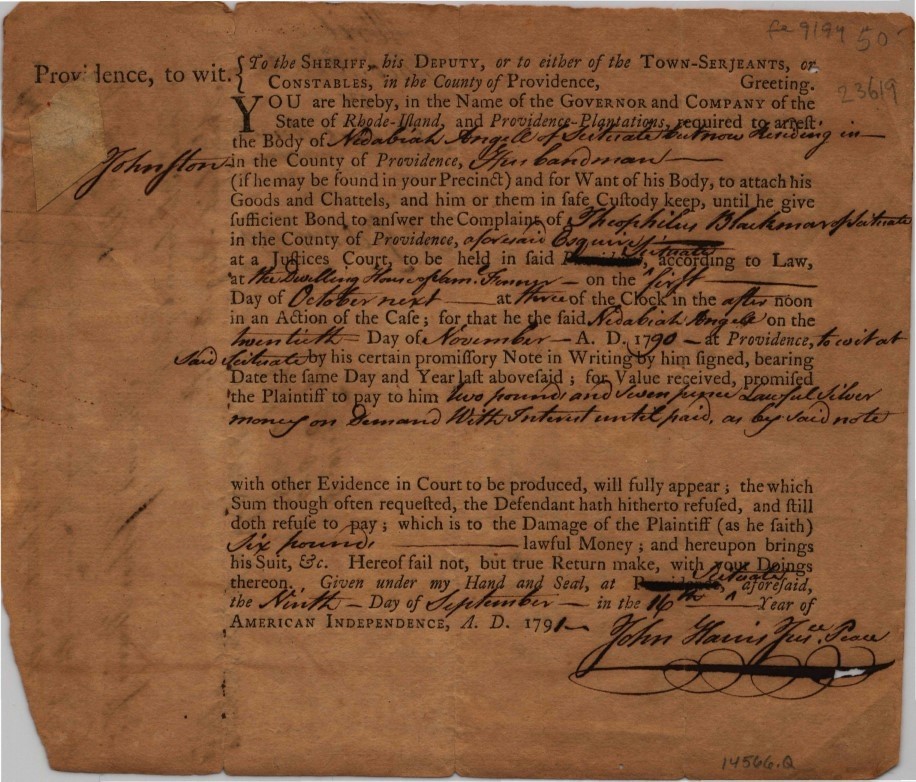 fe 9194 50
23619
Providence, to wit. { To the SHERIFF, his DEPUTY, or to either of the TOWN-SERJEANTS, or
CONSTABLES, in the County of Providence, Greeting.
YOU are hereby, in the Name of the GOVERNOR and COMPANY of the
State of Rhode-Island, and Providence-Plantations, required to arrest
the Body of Nedabiah Angell of Scituate but now Residing in
Johnston in the County of Providence, Husbandman
(if he may be found in your Precinct) and for Want of his Body, to attach his
Goods and Chattels, and him or them in safe Custody keep, until he give
sufficient Bond to answer the Complaint of Theophilus Blackmar of Scituate
in the County of Providence, aforesaid Esquire
at a Justices Court, to be held in said Scituate, according to Law,
at the Dwelling House of Fenner — on the first
Day of October next — at three of the Clock in the after noon
in an Action of the Case; for that he the said Nedabiah Angell on the
twentieth — Day of November — A. D. 1790 — at Providence, to wit at
Said Scituate by his certain promissory Note in Writing by him signed, bearing
Date the same Day and Year last abovesaid; for Value received, promised
the Plaintiff to pay to him two pounds and Seven pence Lawful Silver
money on Demand With Interest until paid, as by Said note
with other Evidence in Court to be produced, will fully appear; the which
Sum though often requested, the Defendant hath hitherto refused, and still
doth refuse to pay; which is to the Damage of the Plaintiff (as he saith)
Six pounds — lawful Money; and hereupon brings
his Suit, &c. Hereof fail not, but true Return make, with your Doings
thereon. Given under my Hand and Seal, at Scituate, aforesaid,
the Ninth — Day of September — in the 16th — Year of
AMERICAN INDEPENDENCE, A. D. 1791
John Harris Jus. Peace
14566.Q